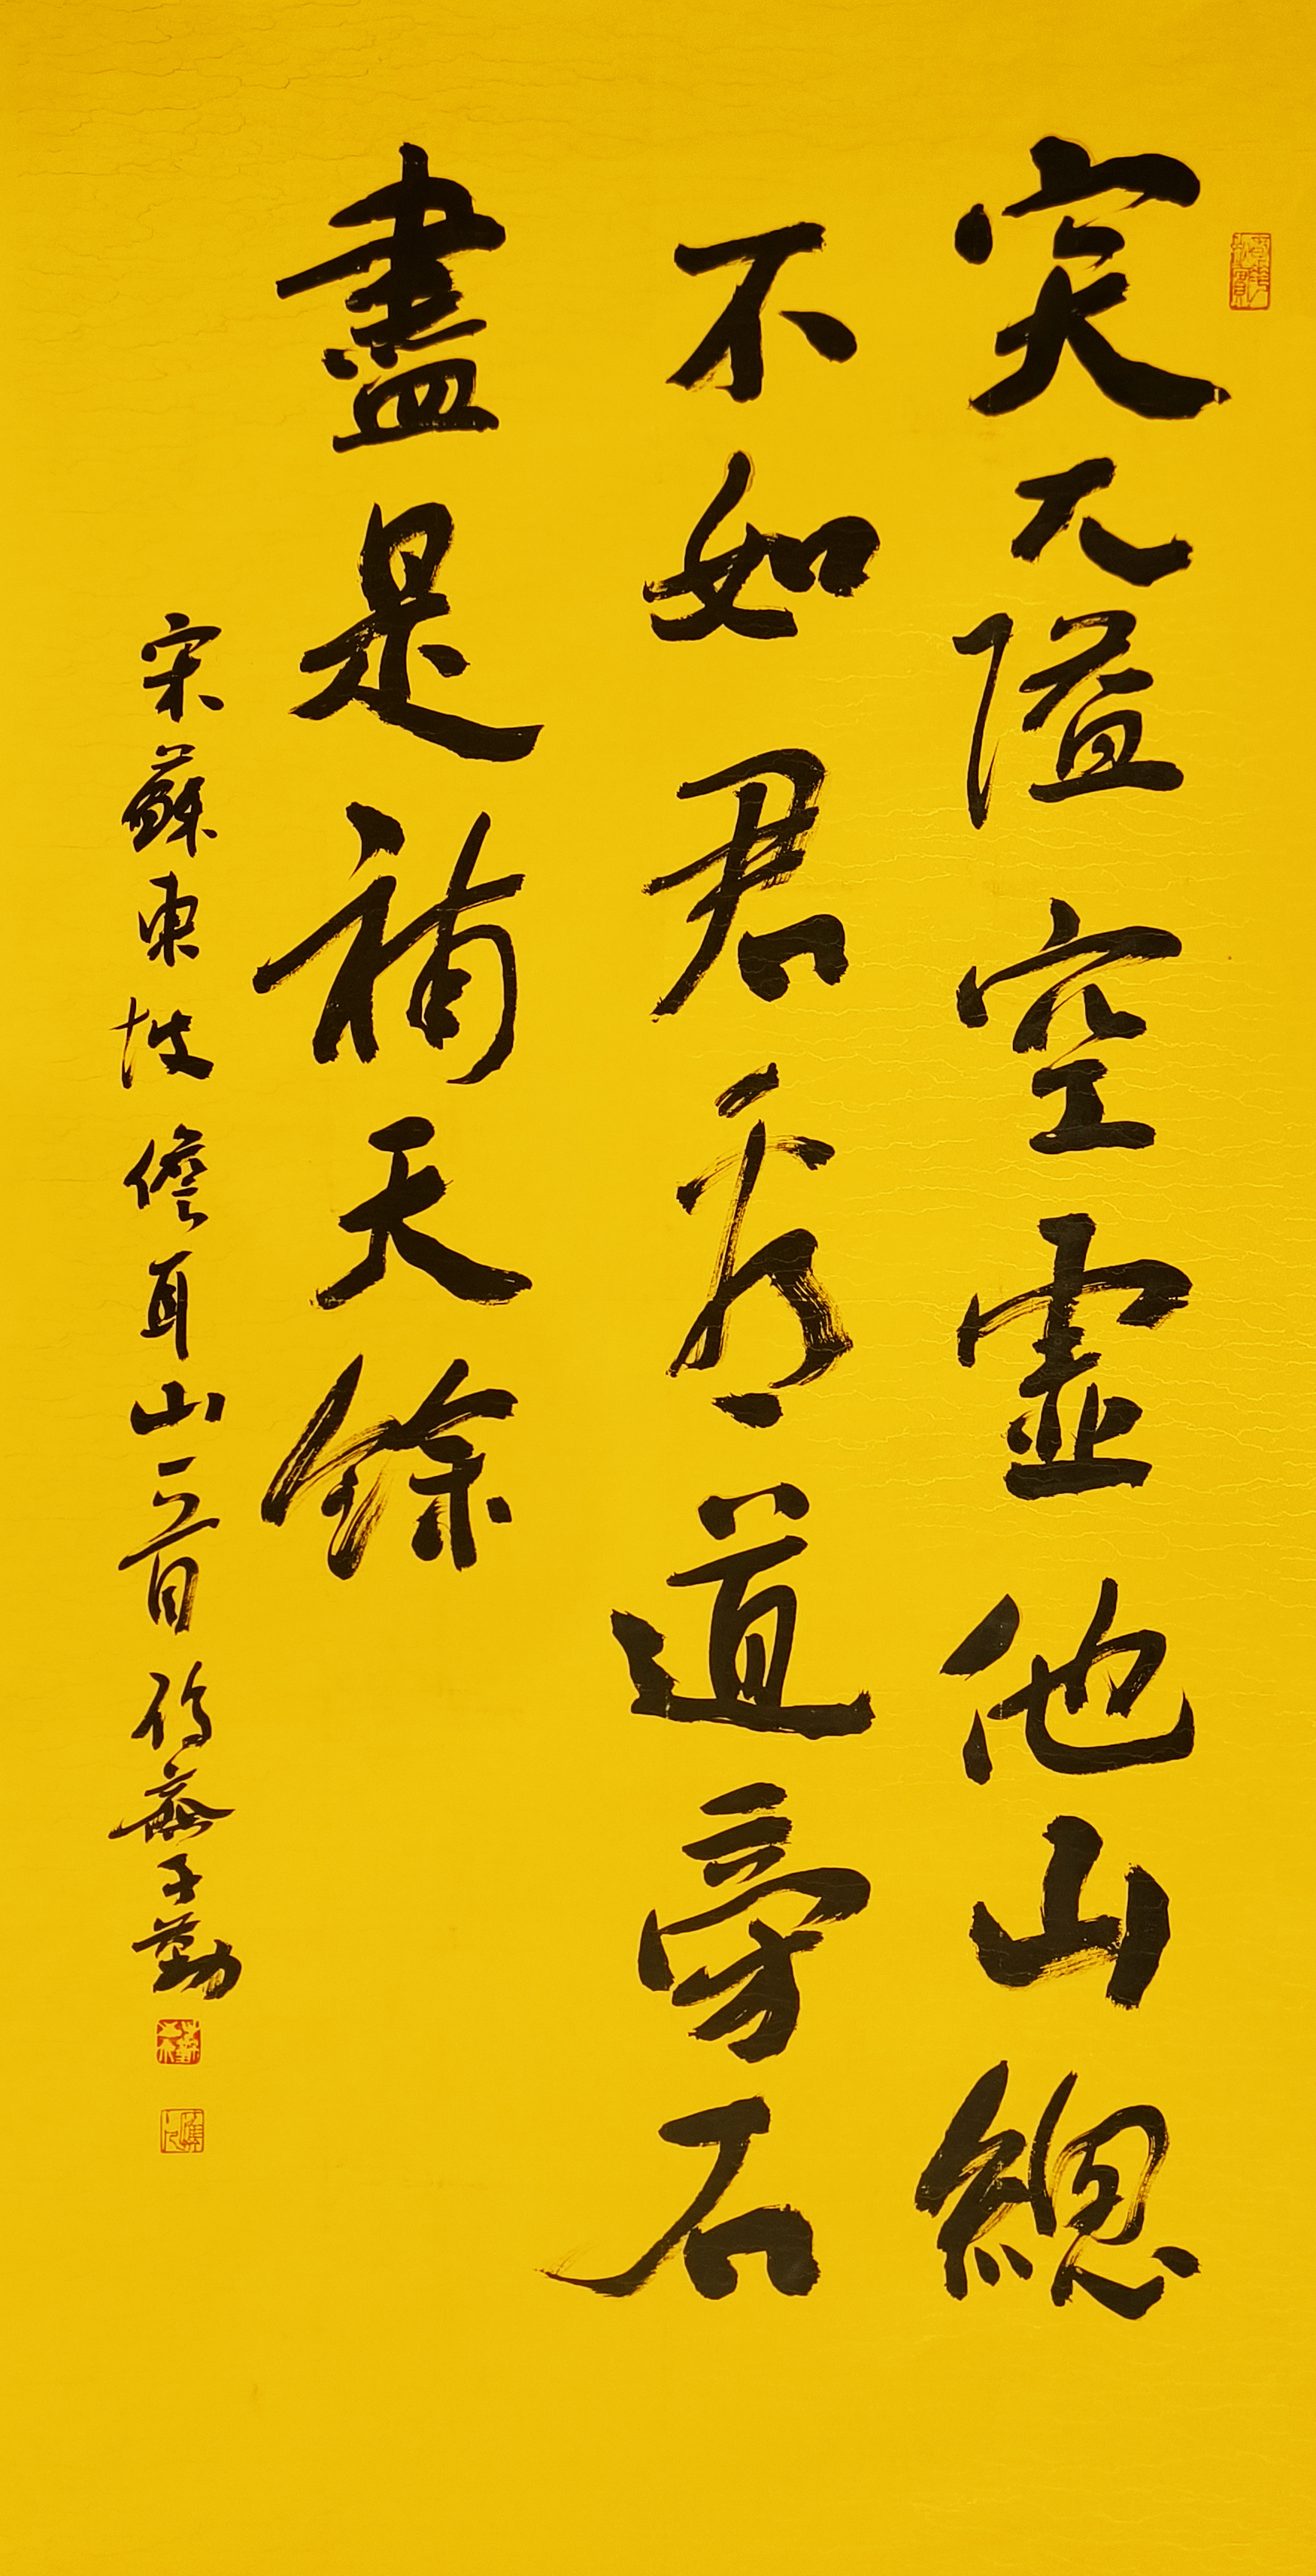 突兀隘空虛他山總
不如君看道旁石
盡是補天餘
宋蘇東坡儋耳山一首子勤